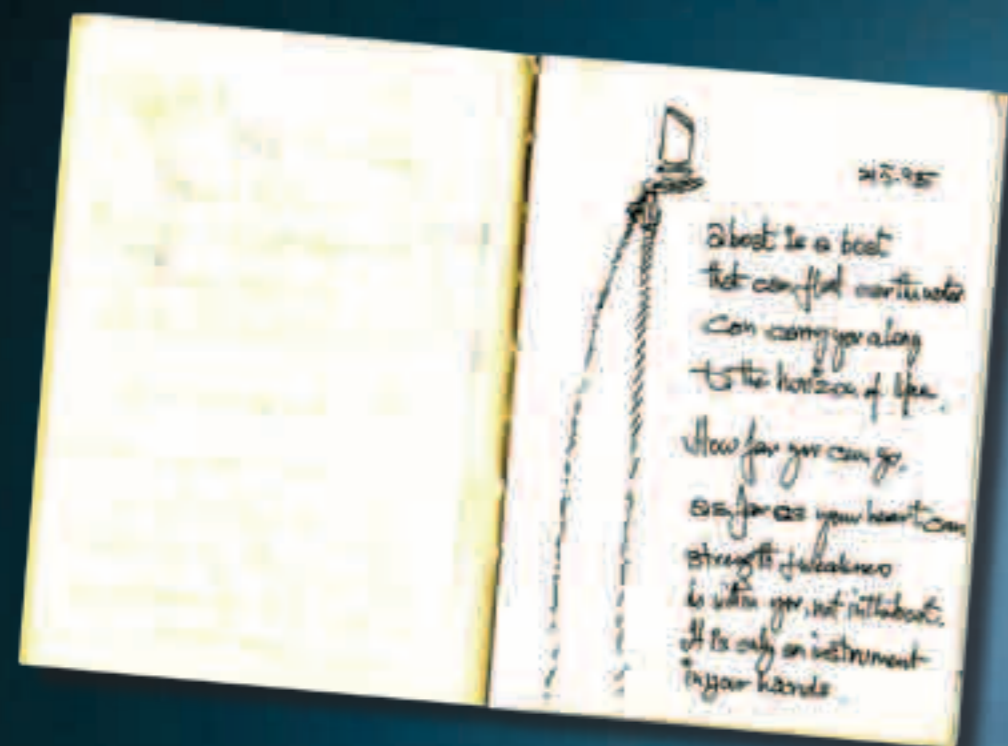 a boat is a boat
that can float over the water
can carry you along
to the horizon of life.
How far you can go,
as far as your heart can
strength & weakness
is within you, not in the boat.
It is only an instrument
in your hands